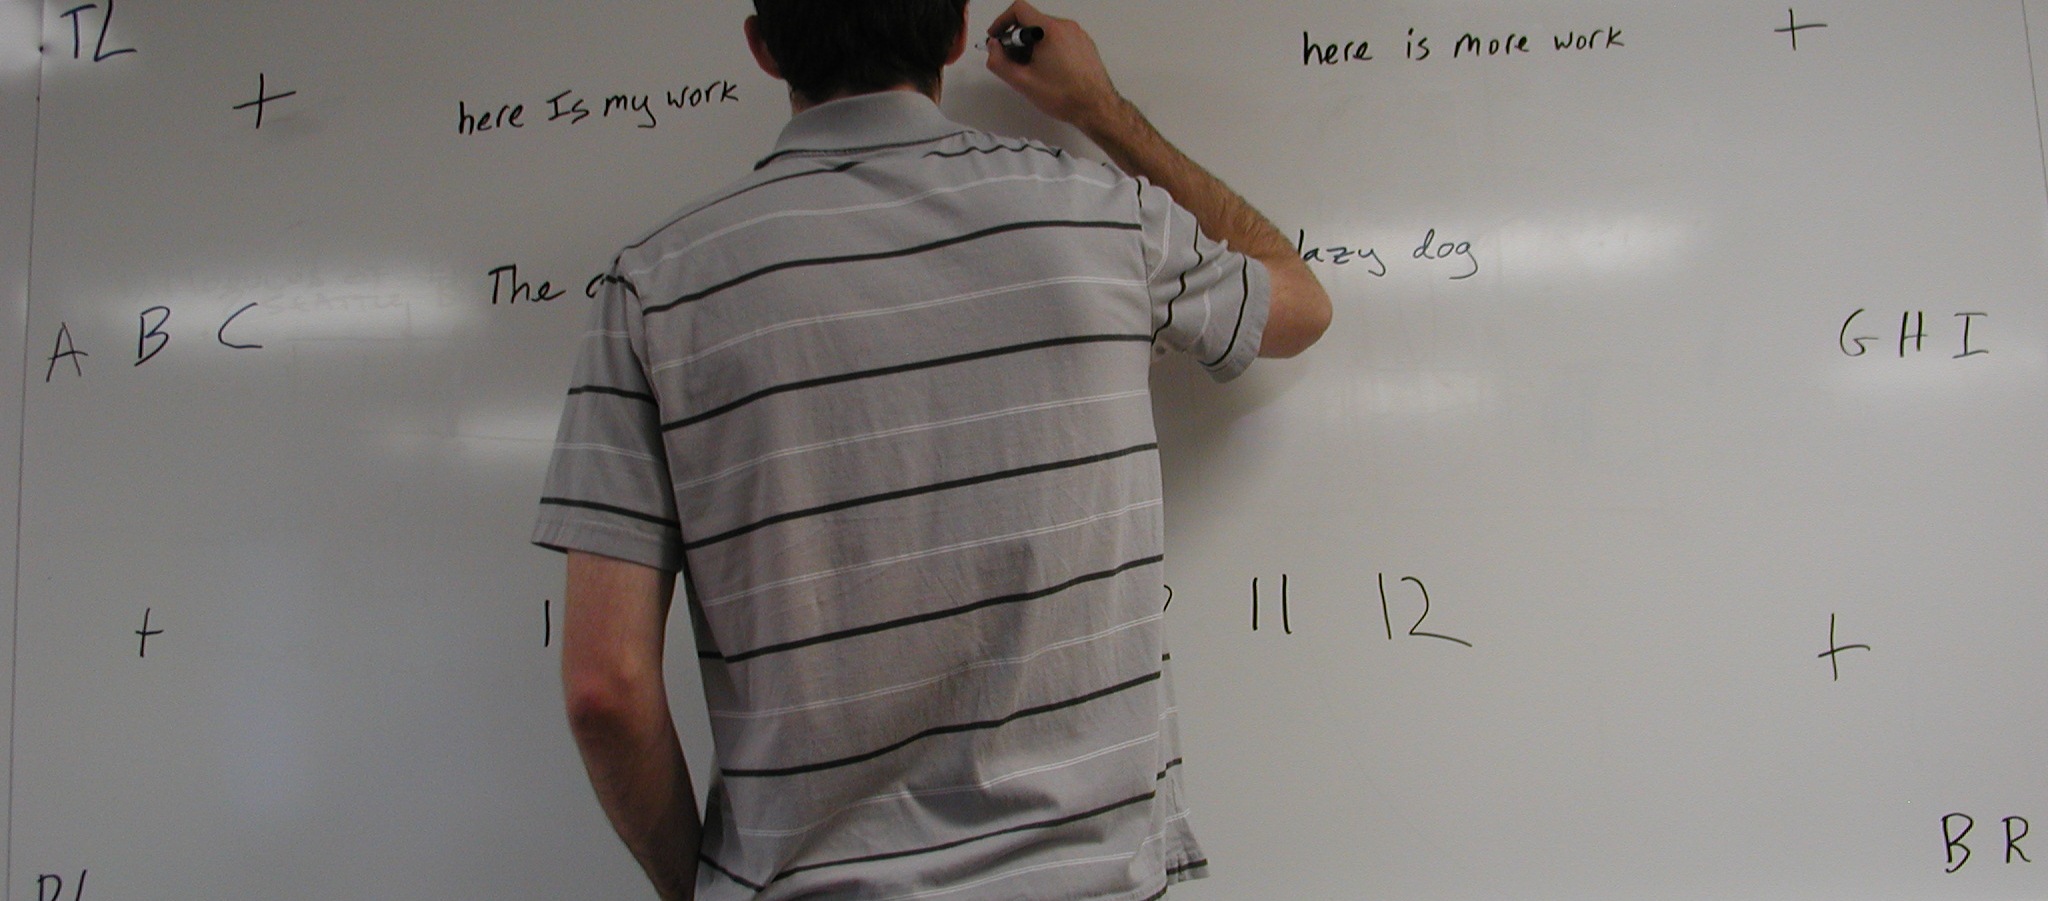 TL
+
here Is my work
here is more work
+
The
lazy dog
A B C
G H I
+
1
11 12
+
B R